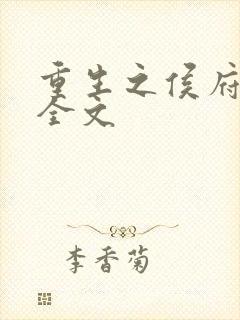 重生之侯府
全文
李香菊